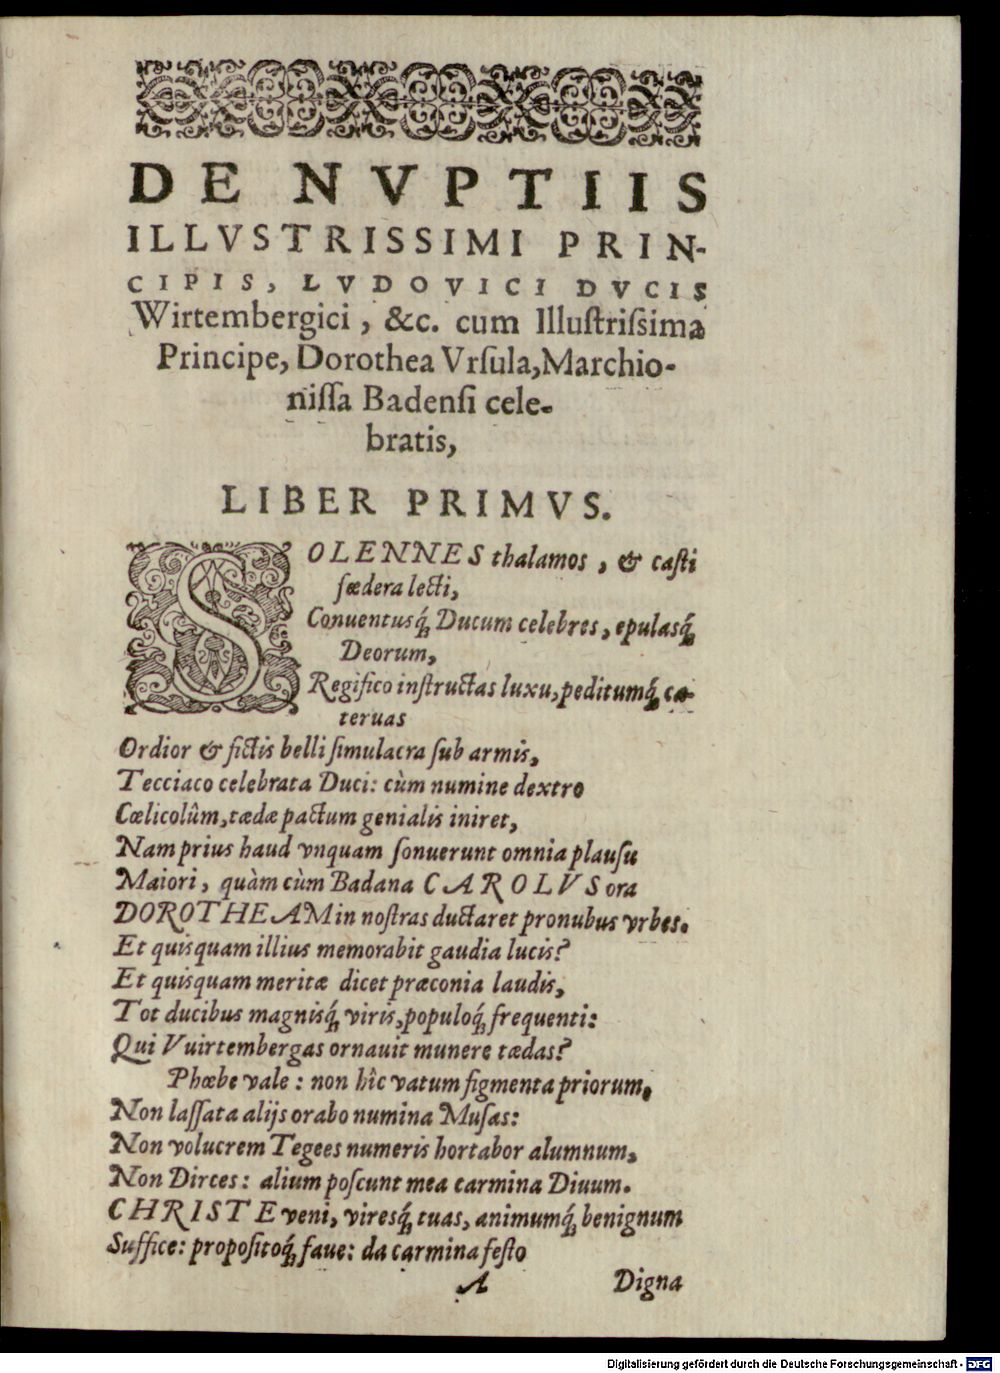 DE NVPTIIS
ILLVSTRISSIMI PRIN-
CIPIS, LVDOVICI DVCIS
Wirtembergici, &c. cum Illustrißima
Principe, Dorothea Vrſula, Marchio-
niſſa Badenſi cele-
bratis,
LIBER PRIMVS.
SOLENNES thalamos, & caſti
fœdera lecti,
Conuentusq́; Ducum celebres, epulasq́;
Deorum,
Regifico inſtructas luxu, peditumq́; ca-
teruas
Ordior & fictis belli ſimulacra ſub armis,
Tecciaco celebrata Duci: cùm numine dextro
Cœlicolûm, tædæ pactum genialis iniret,
Nam prius haud vnquam ſonuerunt omnia plauſu
Maiori, quàm cùm Badana CAROLVS ora
DOROTHEAM in noſtras ductaret pronubus vrbes.
Et quisquam illius memorabit gaudia lucis?
Et quisquam meritæ dicet præconia laudis,
Tot ducibus magnisq́; viris, populoq́; frequenti:
Qui Vuirtembergas ornauit munere tædas?
Phœbe vale: non hîc vatum figmenta priorum,
Non laſſata alijs orabo numina Muſas:
Non volucrem Tegees numeris hortabor alumnum,
Non Dirces: alium poſcunt mea carmina Diuum.
CHRISTE veni, viresq́; tuas, animumq́; benignum
Suffice: propoſitoq́; faue: da carmina feſto
A Digna
Digitalisierung gefördert durch die Deutsche Forschungsgemeinschaft - DFG